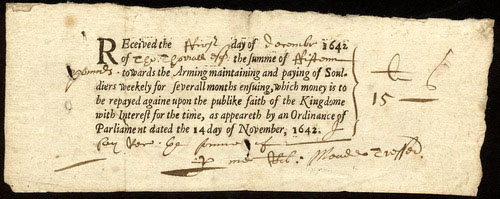 Received the ffirst day of december 1642
of the summe of ffifteene
pounds towards the Arming maintaining and paying of Soul-
diers weekly for severall months ensuing, which money is to
be repayed againe upon the publike faith of the Kingdome
with Interest for the time, as appeareth by an Ordinance of
Parliament dated the 14 day of November, 1642.
15